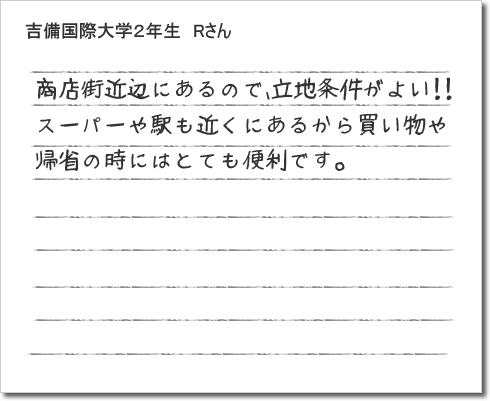 吉備国際大学2年生 Rさん
商店街近辺にあるので、立地条件がよい!!
スーパーや駅も近くにあるから買い物や
帰省の時にはとても便利です。